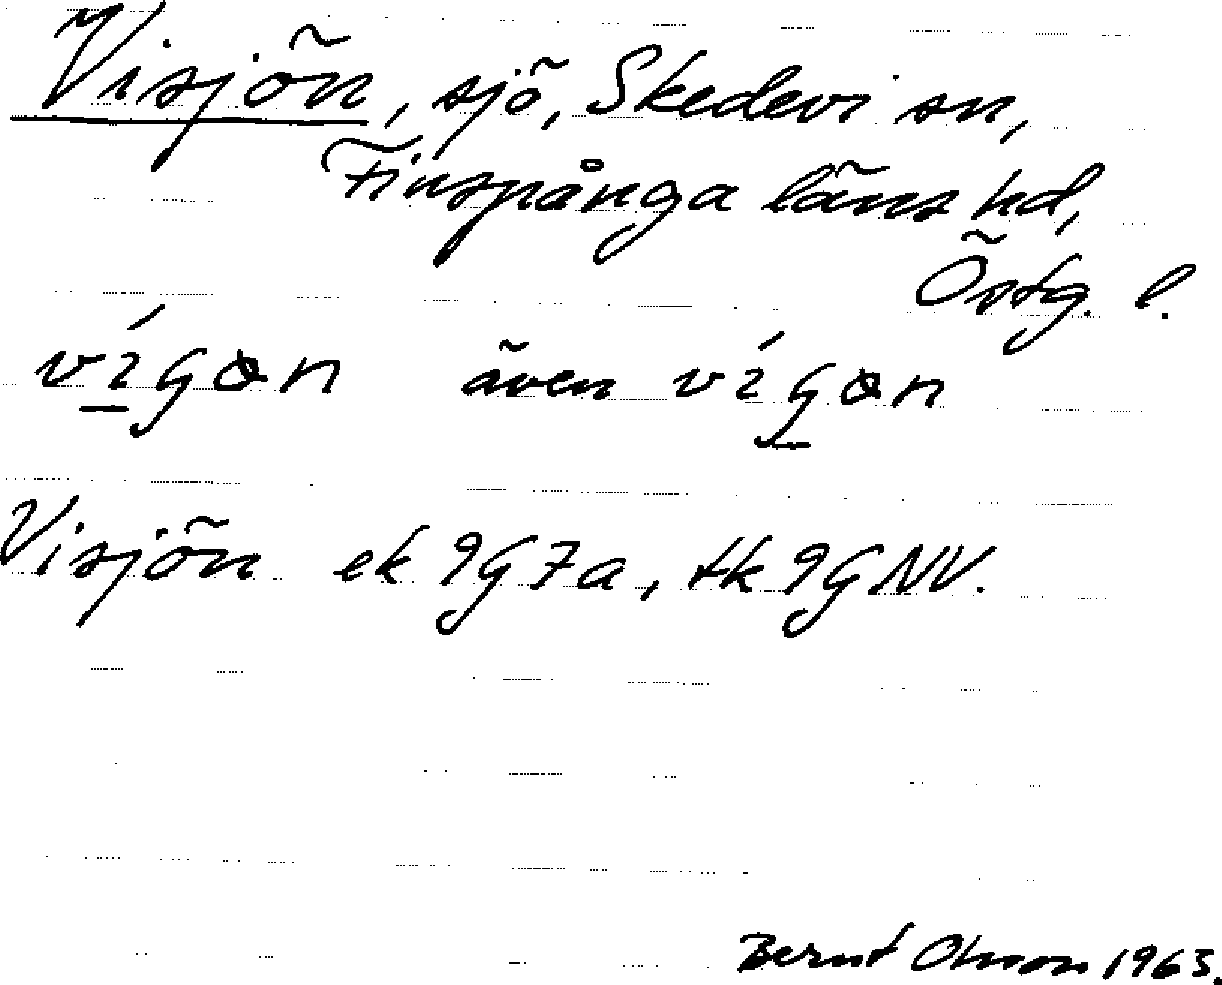 Visjön, sjö, Skedevi sn,
Finspånga läns hd,
Östg. l.
även
Visjön ek 9G7a, tk 9GNV.
Bernt Olsson 1963.